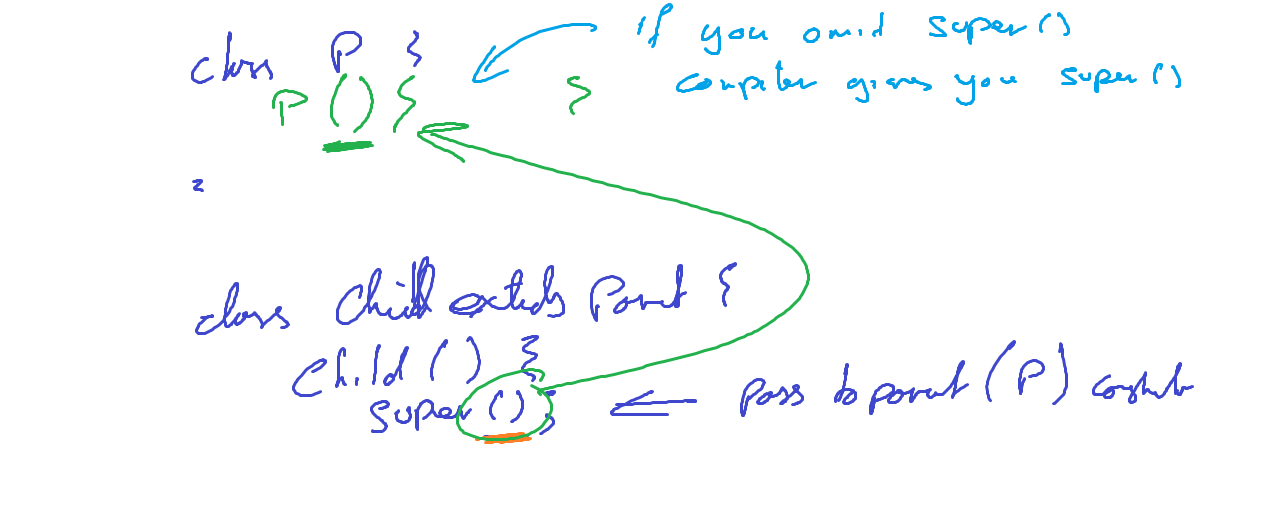 class P {
if you omid super()
P () { }
compiler gives you super()
class Child extends Parent {
Child () {
super();
pass to parent (P)